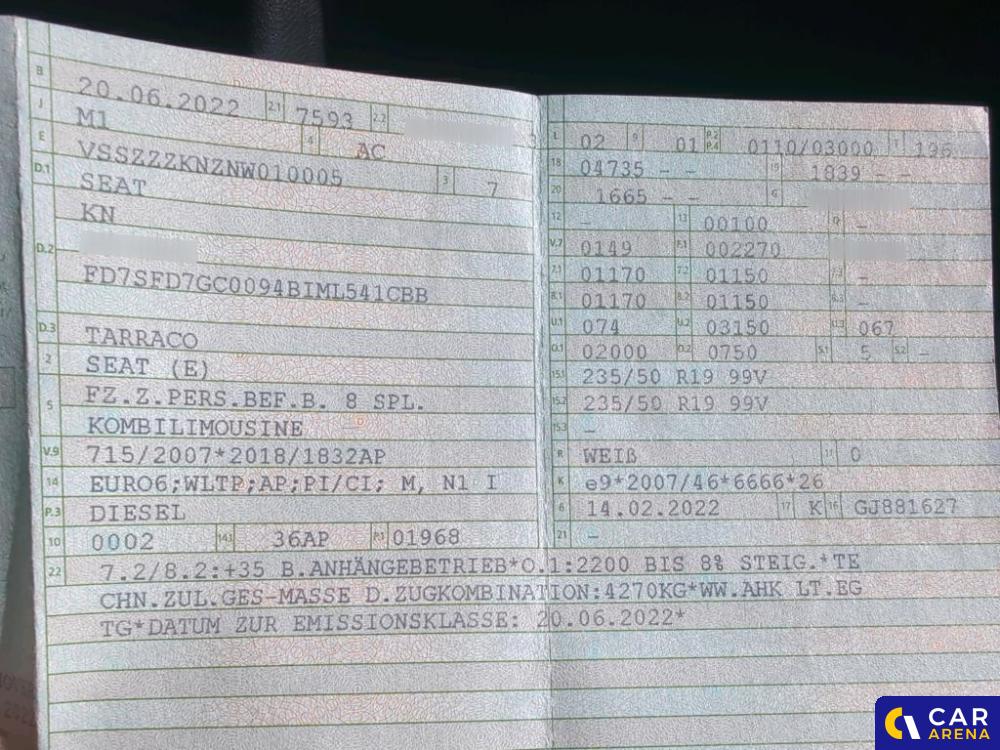 B 20.06.2022 2.1 7593 2.2
J M1 4 AC
E VSSZZZKNZNW010005 3 7
D.1 SEAT
KN
D.2
FD7SFD7GC0094BIML541CBB
D.3 TARRACO
2 SEAT (E)
5 FZ.Z.PERS.BEF.B. 8 SPL.
KOMBILIMOUSINE
V.9 715/2007*2018/1832AP
14 EURO6;WLTP;AP;PI/CI; M, N1 I
P.3 DIESEL
10 0002 14.1 36AP P.1 01968
L 02 9 01 P.2 P.4 0110/03000 T 196
18 04735 - - 19 1839 - -
20 1665 - - G
12 - 13 00100 Q -
V.7 0149 F.1 002270
7.1 01170 7.2 01150 7.3 -
8.1 01170 8.2 01150 8.3 -
U.1 074 U.2 03150 U.3 067
O.1 02000 O.2 0750 S.1 5 S.2 -
15.1 235/50 R19 99V
15.2 235/50 R19 99V
15.3 -
R WEIß 11 0
K e9*2007/46*6666*26
6 14.02.2022 17 K 16 GJ881627
21 -
22 7.2/8.2:+35 B.ANHÄNGEBETRIEB*O.1:2200 BIS 8% STEIG.*TE
CHN.ZUL.GES-MASSE D.ZUGKOMBINATION:4270KG*WW.AHK LT.EG
TG*DATUM ZUR EMISSIONSKLASSE: 20.06.2022*
CAR
ARENA